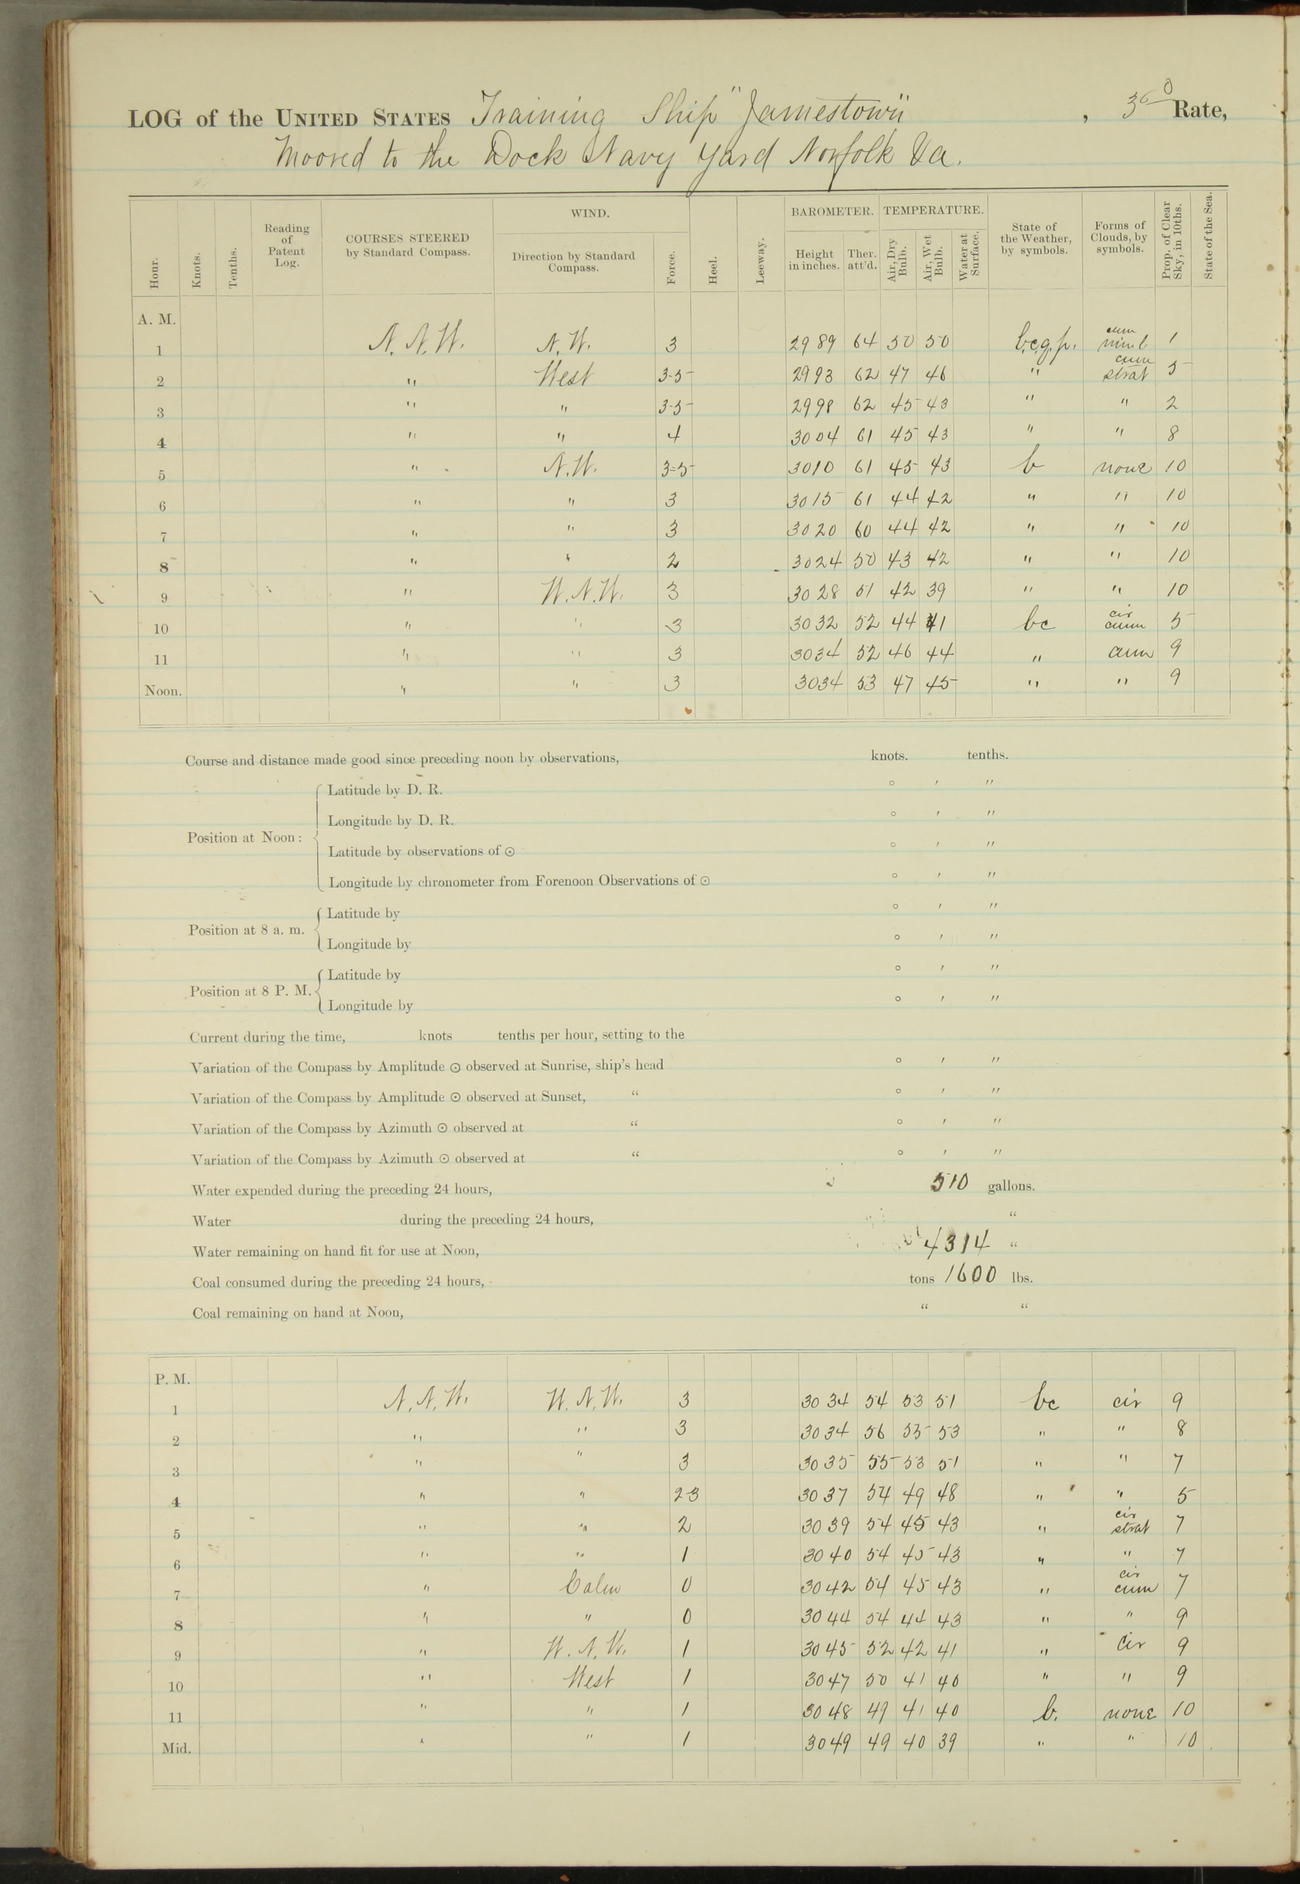 LOG of the UNITED STATES Training Ship "Jamestown", 3rd Rate,
Moored to the Dock Navy Yard Norfolk Va.
WIND. BAROMETER. TEMPERATURE.
Hour. Knots. Tenths. Reading of Patent Log. COURSES STEERED by Standard Compass. Direction by Standard Compass. Force. Heel. Leeway. Height in inches. Ther. att'd. Air, Dry Bulb. Air, Wet Bulb. Water at Surface. State of the Weather, by symbols. Forms of Clouds, by symbols. Prop. of Clear Sky, in 10ths. State of the Sea.
A. M.
1 N. N. W. N. W. 3 29 89 64 50 50 b.c.g.p. cum nimb 1
2 " West 3-5 29 93 62 47 46 " cum strat 5
3 " " 3-5 29 98 62 45 43 " " 2
4 " " 4 30 04 61 45 43 " " 8
5 " N.W. 3-5 30 10 61 45 43 b none 10
6 " " 3 30 15 61 44 42 " " 10
7 " " 3 30 20 60 44 42 " " 10
8 " " 2 30 24 50 43 42 " " 10
9 " W. N. W. 3 30 28 51 42 39 " " 10
10 " " 3 30 32 52 44 41 bc cir cum 5
11 " " 3 30 34 52 46 44 " cum 9
Noon. " " 3 30 34 53 47 45 " " 9
Course and distance made good since preceding noon by observations, knots. tenths.
Position at Noon: Latitude by D. R. ° ′ ″
Longitude by D. R. ° ′ ″
Latitude by observations of ⊙ ° ′ ″
Longitude by chronometer from Forenoon Observations of ⊙ ° ′ ″
Position at 8 a. m. Latitude by ° ′ ″
Longitude by ° ′ ″
Position at 8 P. M. Latitude by ° ′ ″
Longitude by ° ′ ″
Current during the time, knots tenths per hour, setting to the
Variation of the Compass by Amplitude ⊙ observed at Sunrise, ship's head ° ′ ″
Variation of the Compass by Amplitude ⊙ observed at Sunset, “ ° ′ ″
Variation of the Compass by Azimuth ⊙ observed at “ ° ′ ″
Variation of the Compass by Azimuth ⊙ observed at “ ° ′ ″
Water expended during the preceding 24 hours, 510 gallons.
Water during the preceding 24 hours, “
Water remaining on hand fit for use at Noon, 4314 “
Coal consumed during the preceding 24 hours, tons 1600 lbs.
Coal remaining on hand at Noon, “ “
P. M.
1 N. N. W. W. N. W. 3 30 34 54 53 51 bc cir 9
2 " " 3 30 34 56 55 53 " " 8
3 " " 3 30 35 55 53 51 " " 7
4 " " 2-3 30 37 54 49 48 " " 5
5 " " 2 30 39 54 45 43 " cir strat 7
6 " " 1 30 40 54 45 43 " " 7
7 " Calm 0 30 42 54 45 43 " cir cum 7
8 " " 0 30 44 54 44 43 " " 9
9 " W. N. W. 1 30 45 52 42 41 " cir 9
10 " West 1 30 47 50 41 40 " " 9
11 " " 1 30 48 49 41 40 b. none 10
Mid. " " 1 30 49 49 40 39 " " 10